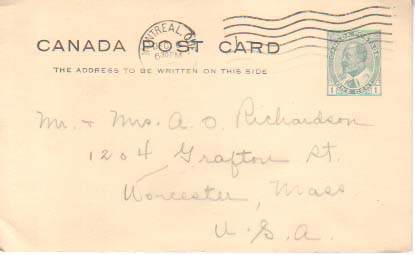 MONTREAL, QUE.
6 PM
CANADA POST CARD
THE ADDRESS TO BE WRITTEN ON THIS SIDE
1 ONE CENT 1
Mr. + Mrs. A. O. Richardson
1204 Grafton St.
Worcester, Mass
U.S.A.